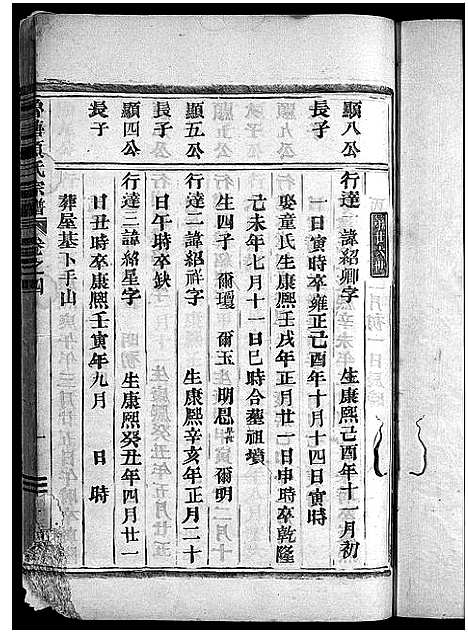 顯八公 行達一諱紹卿字 生康熙己酉年十一月初
長子 一日寅時卒雍正己酉年十月十四日寅時
娶童氏生康熙壬戌年正月廿一日申時卒乾隆
己未年七月十一日巳時合墓祖墳
生四子 爾瓊 爾玉 明恩 爾明
顯五公 行達二諱紹祥字 生康熙辛亥年正月二十
長子 日午時卒缺
顯四公 行達三諱紹星字 生康熙癸丑年四月廿一
長子 日丑時卒康熙壬寅年九月 日 時
葬屋基下手山
氏宗譜 卷之四